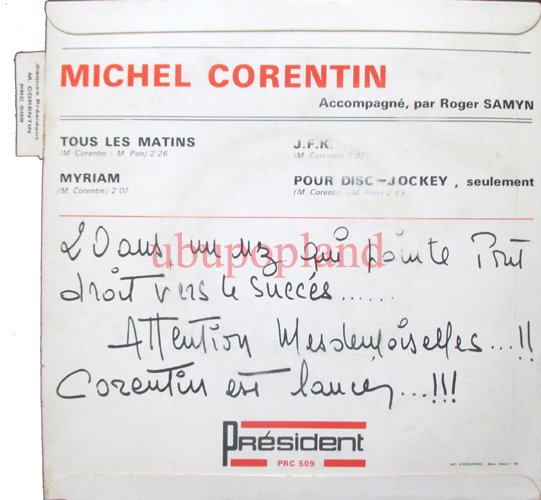 MICHEL CORENTIN
Accompagné, par Roger SAMYN
TOUS LES MATINS
(M. Corentin - M. Pon) 2'26
J.F.K.
(M. Corentin) 3'07
MYRIAM
(M. Corentin) 2'07
POUR DISC-JOCKEY, seulement
(M. Corentin - M. Pon) 2'43
20 ans, un nez qui pointe tout
droit vers le succès......
Attention Mesdemoiselles...!!
Corentin est lancé...!!!
Président
PRC 509
disques Président
M. CORENTIN
PRC 509
ubupopland